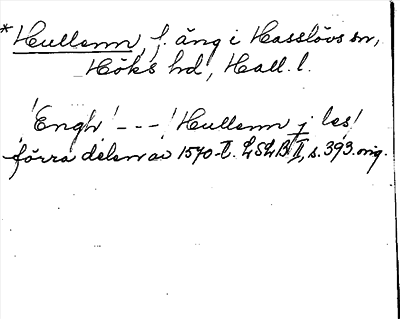 *Hullenn, f. äng i Hasslövs sn,
Höks hd, Hall. l.
'Engh' --- 'Hullenn j les'
förra delen av 1570-t. LSLB II, s. 393. orig.